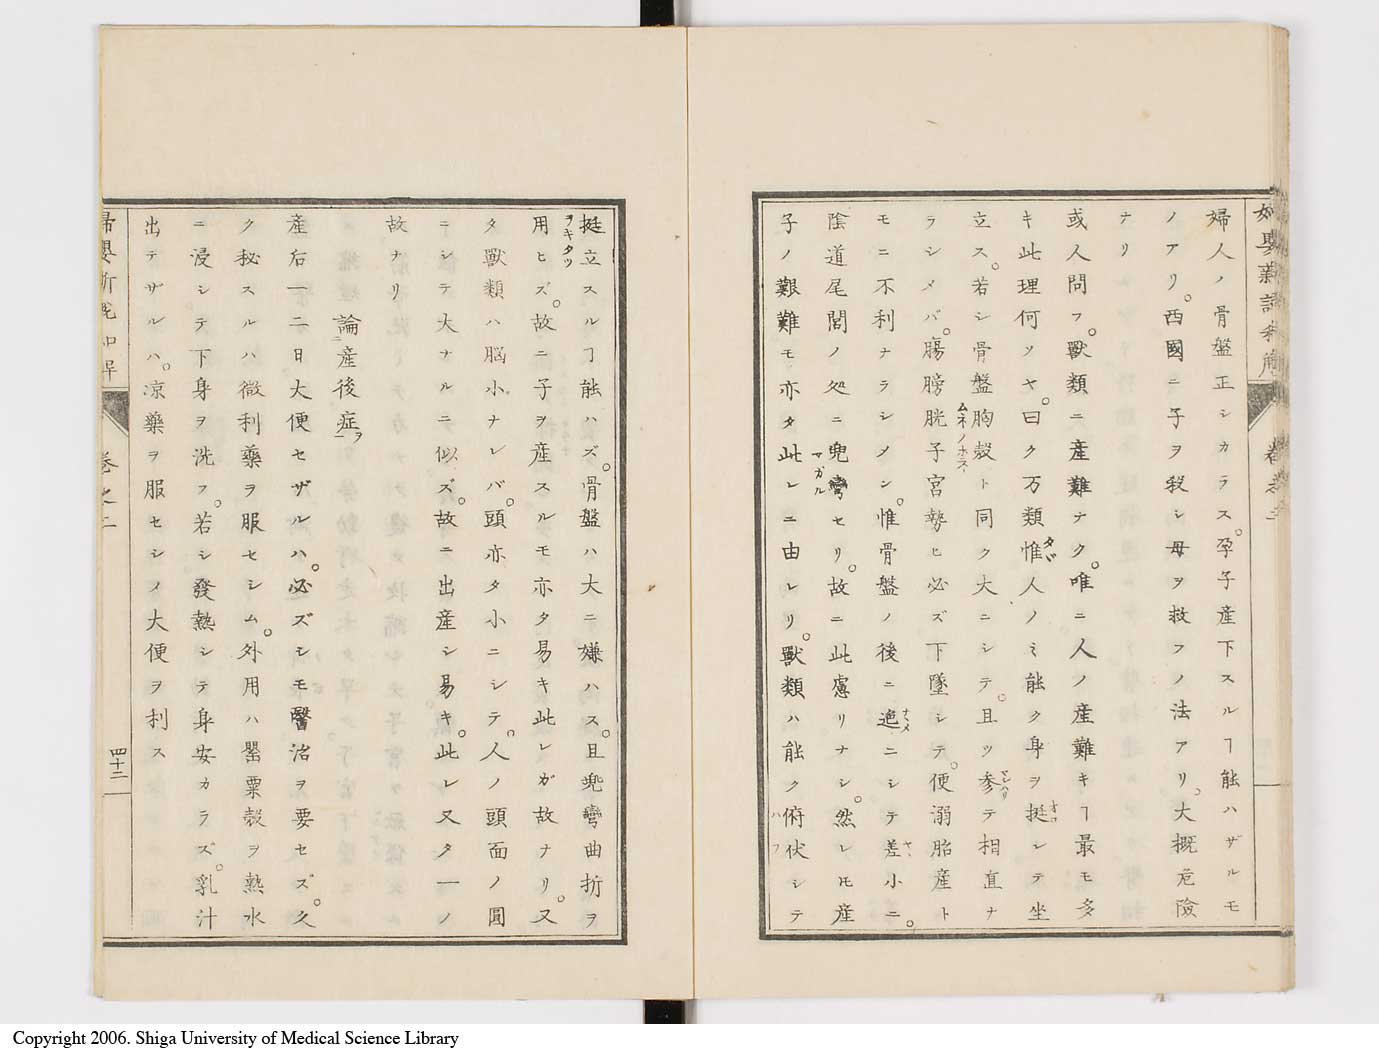 婦人ノ骨盤正シカラス。孕子産下スルヿ能ハザルモ
ノアリ。西國ニ子ヲ殺シ母ヲ救フノ法アリ。大概危險
ナリ
或人問フ。獸類ニ産難ナク。唯ニ人ノ産難キヿ最モ多
キ此理何ソヤ。曰ク万類惟人ノミ能ク身ヲ挺シテ坐
立ス。若シ骨盤胸殻ト同ク大ニシテ。且ツ参テ相直ナ
ラシメバ。膓膀胱子宮勢ヒ必ズ下墜シテ。便溺胎産ト
モニ不利ナラシメン。惟骨盤ノ後ニ迤ニシテ差小ニ。
陰道尾閭ノ処ニ兜彎セリ。故ニ此慮リナシ。然レ𪜈産
子ノ艱難モ亦タ此レニ由レリ。獸類ハ能ク俯伏シテ
挺立スルヿ能ハズ。骨盤ハ大ニ嫌ハス。且兜彎曲折ヲ
用ヒズ。故ニ子ヲ産スルモ亦タ易キ此レガ故ナリ。又
タ獸類ハ脳小ナレバ。頭亦タ小ニシテ。人ノ頭面ノ圓
ニシテ大ナルニ似ズ。故ニ出産シ易キ。此レ又タ一ノ
故ナリ
論産後症
産后一二日大便セザルハ。必ズシモ醫治ヲ要セズ。久
ク秘スルハ微利藥ヲ服セシム。外用ハ罌粟殻ヲ熱水
ニ浸シテ下身ヲ洗フ。若シ發熱シテ身安カラズ。乳汁
出テザルハ。凉藥ヲ服セシメ大便ヲ利ス
卷之二
四十二